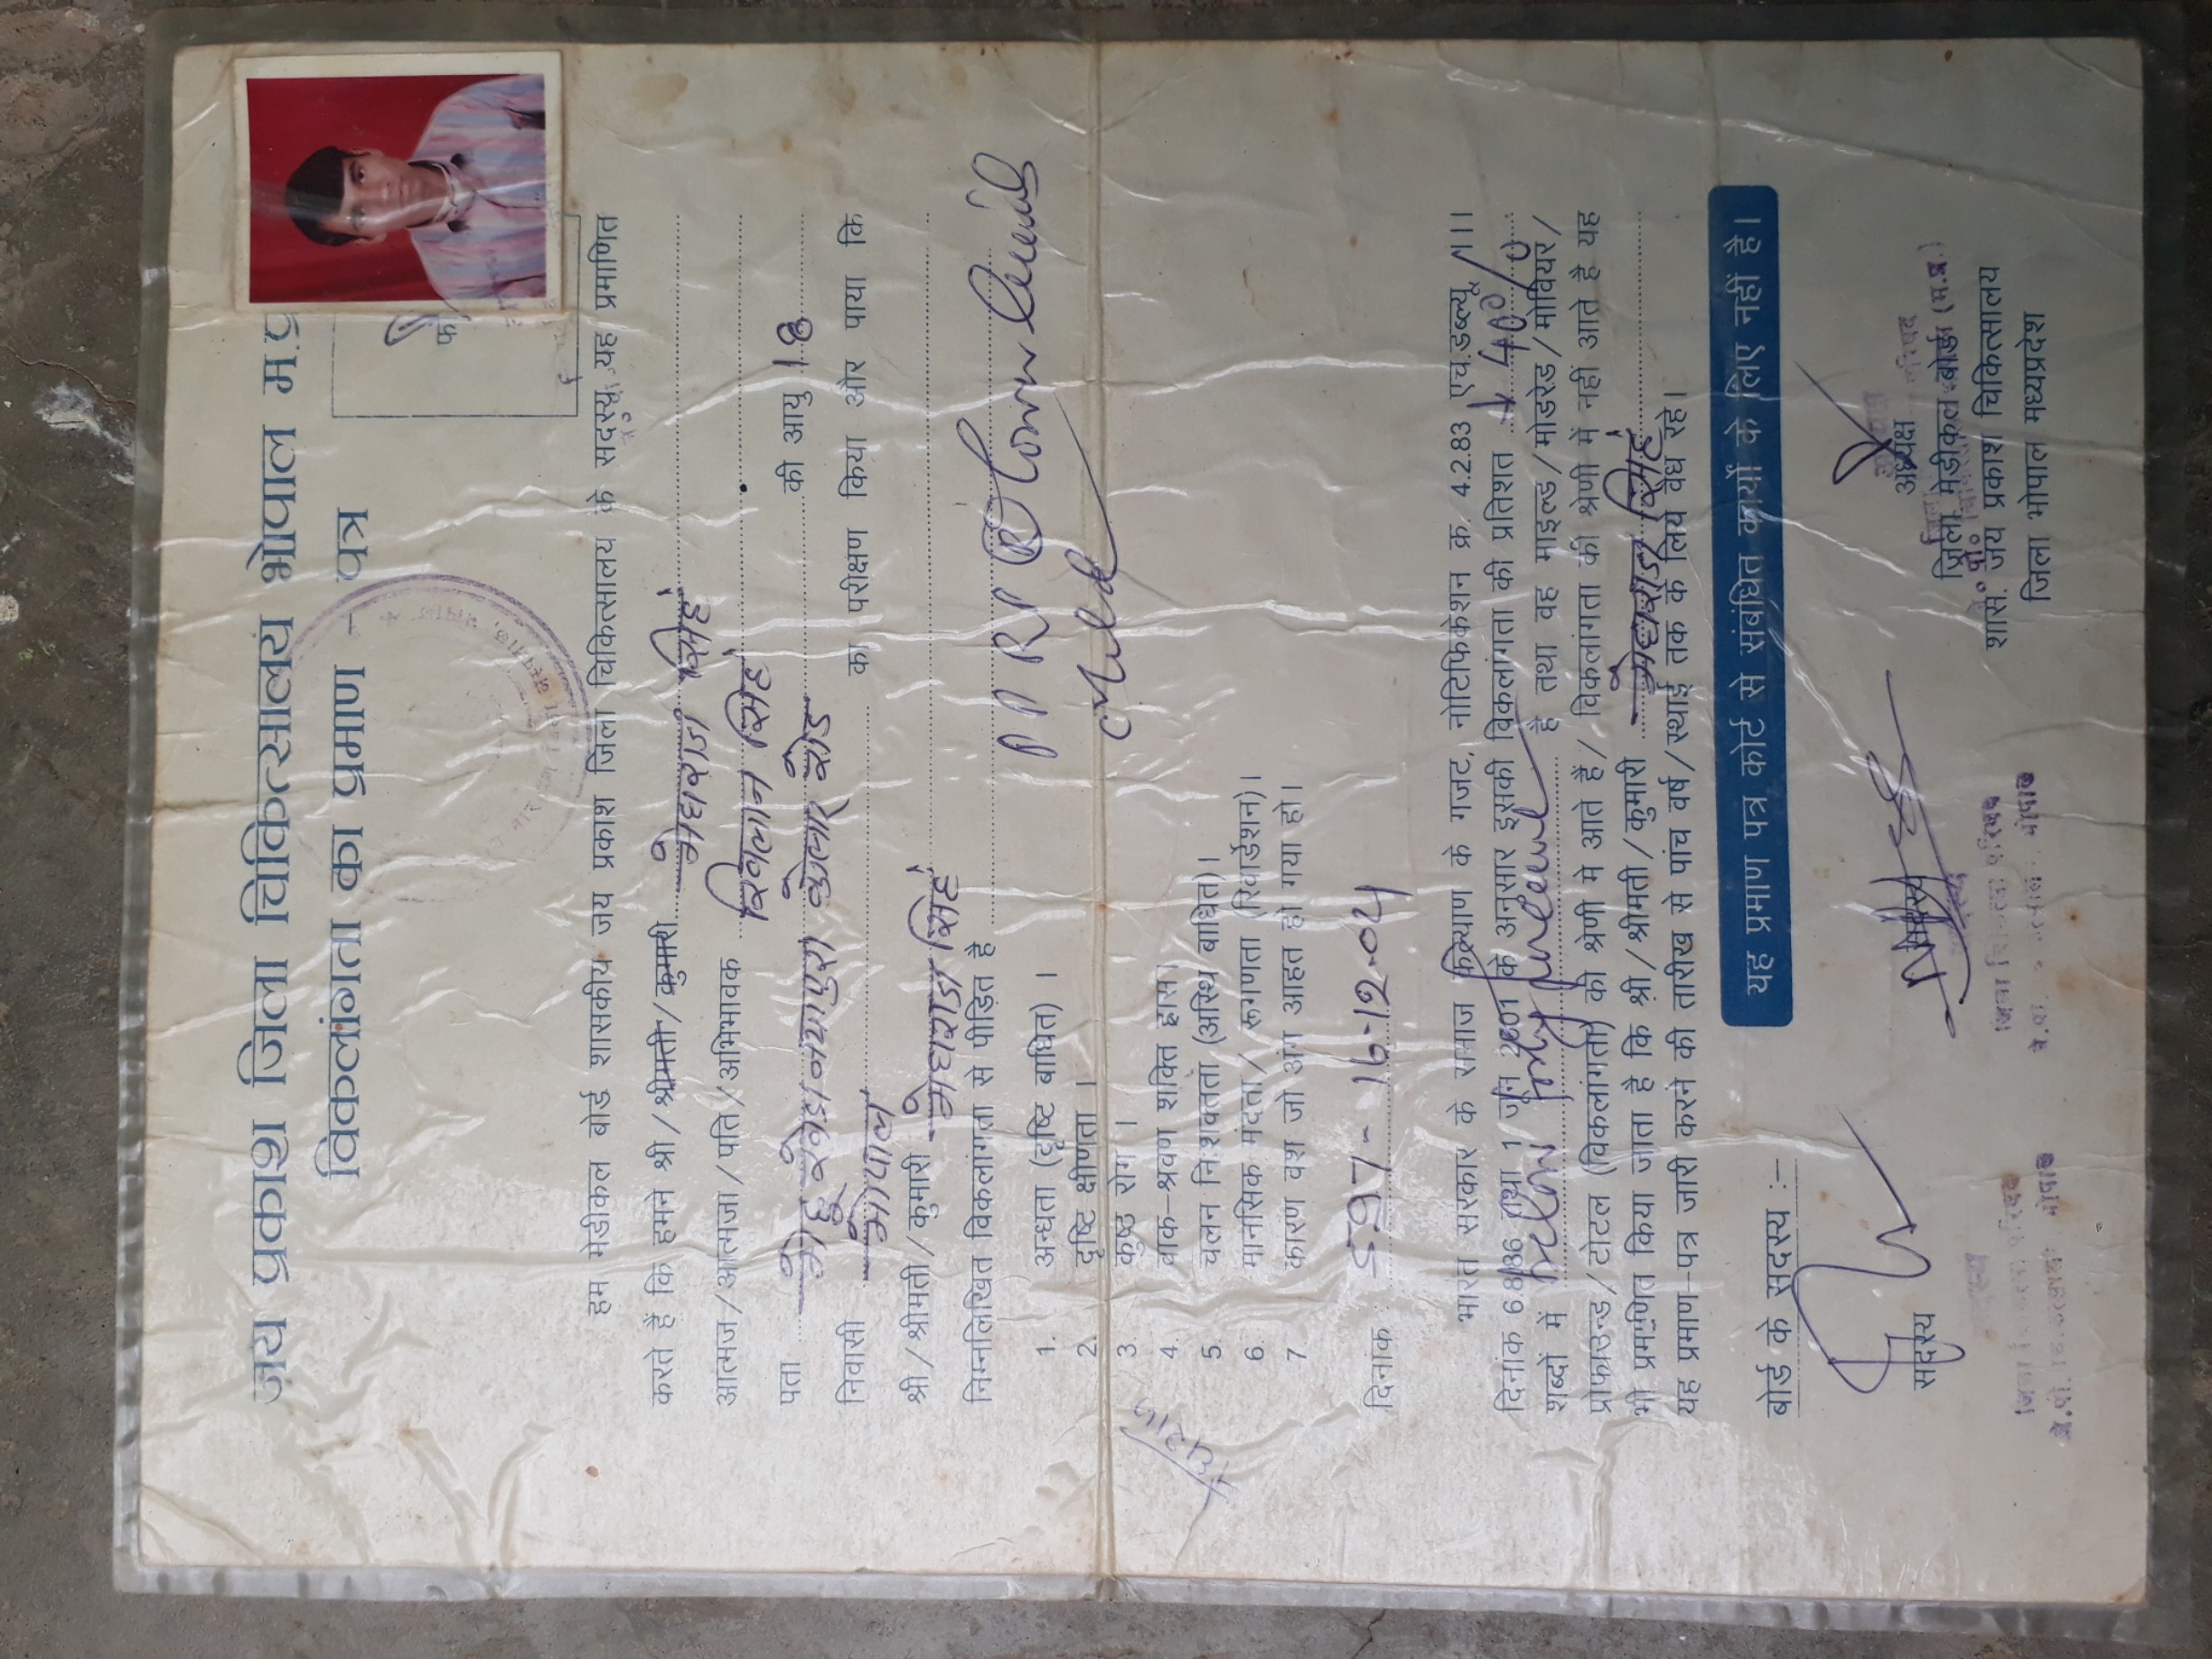 जय प्रकाश जिला चिकित्सालय भोपाल म.प्र
विकलांगता का प्रमाण - पत्र
हम मेडीकल बोर्ड शासकीय जय प्रकाश जिला चिकित्सालय के सदस्य यह प्रमाणित
करते हैं कि हमने श्री/श्रीमती/कुमारी मेघराज सिंह
आत्मज/आत्मजा/पति/अभिभावक
पता नयापुरा कोलार रोड की आयु 18
निवासी भोपाल का परीक्षण किया और पाया कि
श्री/श्रीमती/कुमारी मेघराज सिंह
निम्नलिखित विकलांगता से पीड़ित है PPRP
1. अन्धता (दृष्टि बाधित) ।
2. दृष्टि क्षीणता ।
3. कुष्ठ रोग ।
4. वाक-श्रवण शक्ति ह्रास।
5. चलन निःशक्तता (अस्थि बाधित)।
6. मानसिक मंदता/रूगणता (रिटार्डेशन)।
7. कारण वश जो अंग आहत हो गया हो।
दिनांक 597-16.12.04
भारत सरकार के समाज कल्याण के गजट, नोटिफिकेशन क्र. 4.2.83 एच.डब्ल्यू
दिनांक 6.8.86 तथा 1 जून 2001 के अनुसार इसकी विकलांगता की प्रतिशत ↓ 40%
शब्दों में below है तथा वह माइल्ड/मोडरेड/मीवियर/
प्रोफाउन्ड/टोटल (विकलांगता) की श्रेणी मे आते हैं/विकलांगता की श्रेणी में नहीं आते है यह
भी प्रमाणित किया जाता है कि श्री/श्रीमती/कुमारी मेघराज सिंह
यह प्रमाण-पत्र जारी करने की तारीख से पांच वर्ष/स्थाई तक के लिये वैध रहे।
यह प्रमाण पत्र कोर्ट से संबंधित कार्यो के लिए नहीं है।
बोर्ड के सदस्य :-
सदस्य
सदस्य
अध्यक्ष
जिला मेडीकल बोर्ड (म.प्र.)
शास. जय प्रकाश चिकित्सालय
जिला भोपाल मध्यप्रदेश